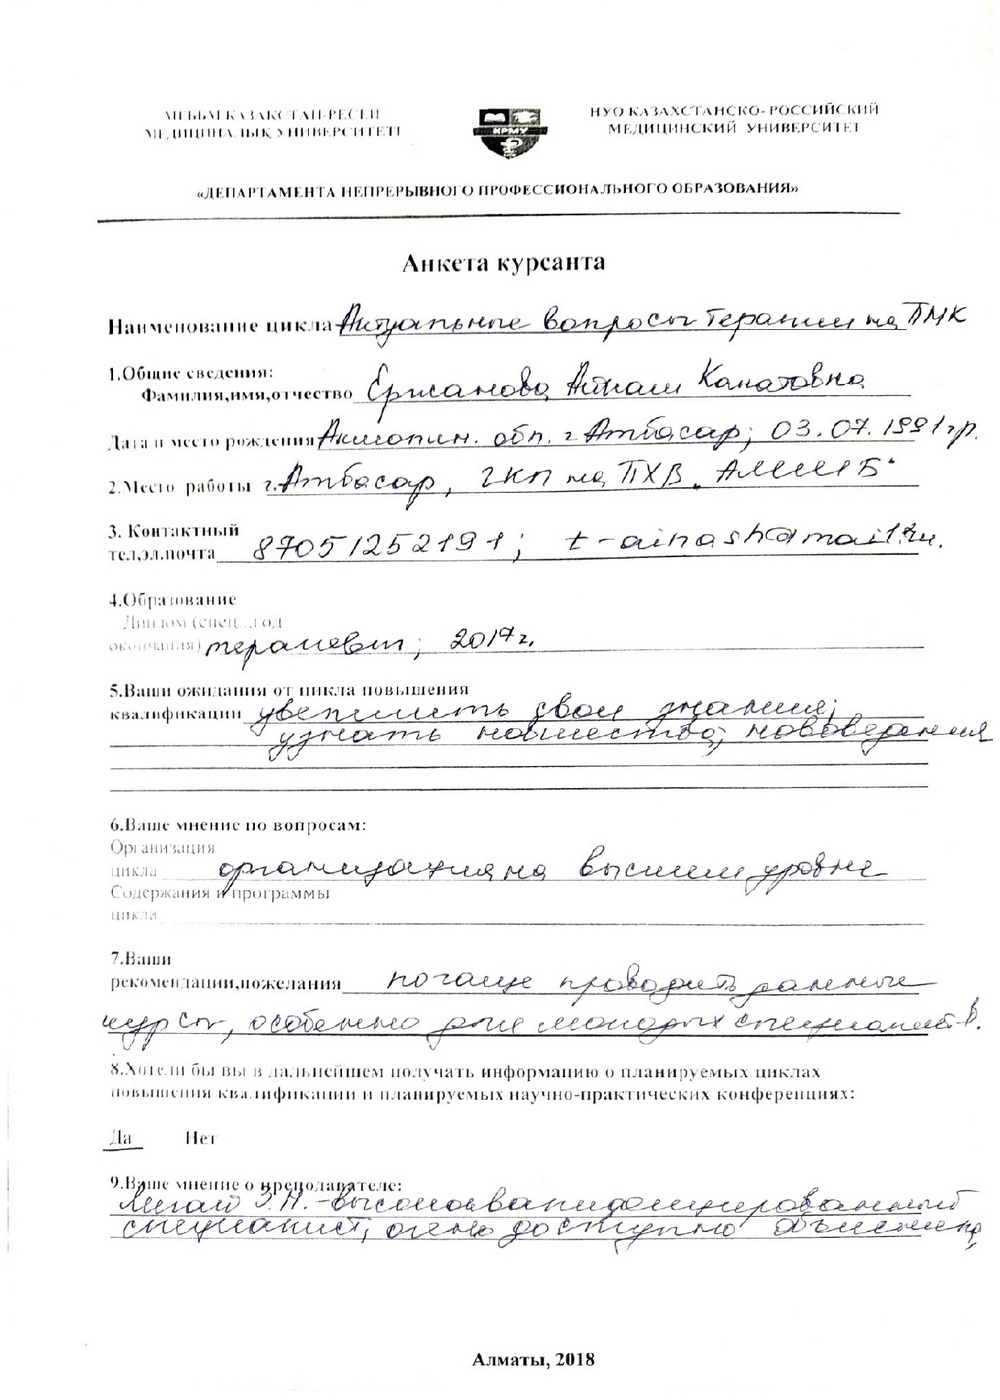 МЕББМ ҚАЗАҚСТАН-РЕСЕЙ
МЕДИЦИНАЛЫҚ УНИВЕРСИТЕТІ
КРМУ
НУО КАЗАХСТАНСКО-РОССИЙСКИЙ
МЕДИЦИНСКИЙ УНИВЕРСИТЕТ
«ДЕПАРТАМЕНТА НЕПРЕРЫВНОГО ПРОФЕССИОНАЛЬНОГО ОБРАЗОВАНИЯ»
Анкета курсанта
Наименование цикла Актуальные вопросы терапии на ПМК
1.Общие сведения:
Фамилия,имя,отчество Ержанова Айнаш Канатовна
Дата и место рождения Акмолин. обл. г. Атбасар; 03.07.1991 гр.
2.Место работы г. Атбасар, ГКП на ПХВ „АММБ“
3. Контактный
тел,эл.почта 87051252191; t-ainash@mail.ru.
4.Образование
Диплом (спец...год
окончания) терапевт; 2017г.
5.Ваши ожидания от цикла повышения
квалификации увеличить свои знания;
узнать новшества; нововедения
6.Ваше мнение по вопросам:
Организация
цикла организация на высшем уровне
Содержания и программы
цикла
7.Ваши
рекомендации,пожелания почаще проводить данные
курсы, особенно для молодых специалистов.
8.Хотели бы вы в дальнейшем получать информацию о планируемых циклах
повышения квалификации и планируемых научно-практических конференциях:
Да Нет
9.Ваше мнение о преподавателе:
З.Н. - высококвалифицированный
специалист, очень доступно объяснила,
Алматы, 2018